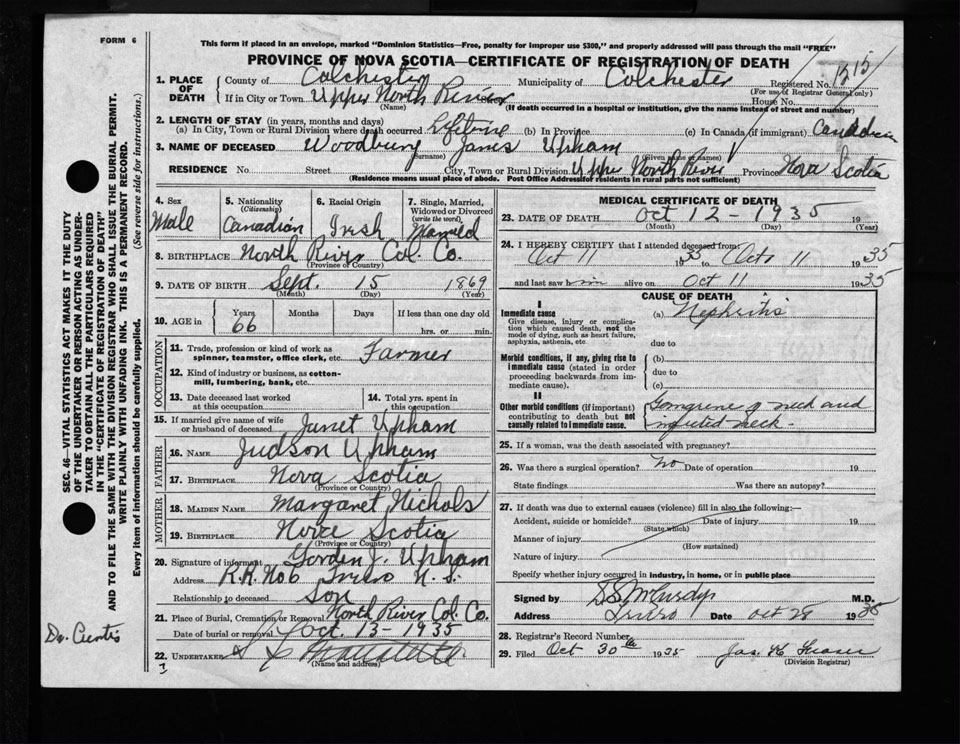 FORM 6
This form if placed in an envelope, marked "Dominion Statistics—Free, penalty for improper use $300," and properly addressed will pass through the mail "FREE"
PROVINCE OF NOVA SCOTIA—CERTIFICATE OF REGISTRATION OF DEATH
1. PLACE OF DEATH
County of Colchester Municipality of Colchester Registered No.
(For use of Registrar General only)
If in City or Town Upper North River House No.
(Name) (If death occurred in a hospital or institution, give the name instead of street and number)
2. LENGTH OF STAY (in years, months and days)
(a) In City, Town or Rural Division where death occurred Lifetime (b) In Province (c) In Canada (if immigrant) Canadian
3. NAME OF DECEASED Woodbury James Upham
(Surname) (Given name or names)
RESIDENCE No. Street City, Town or Rural Division Upper North River Province Nova Scotia
(Residence means usual place of abode. Post Office Address for residents in rural parts not sufficient)
4. Sex Male
5. Nationality (Citizenship) Canadian
6. Racial Origin Irish
7. Single, Married, Widowed or Divorced (write the word) Married
8. BIRTHPLACE North River Col. Co.
(Province or Country)
9. DATE OF BIRTH Sept. 15 1869
(Month) (Day) (Year)
10. AGE in Years 66 Months Days If less than one day old
hrs. or min.
OCCUPATION
11. Trade, profession or kind of work as spinner, teamster, office clerk, etc. Farmer
12. Kind of industry or business, as cotton-mill, lumbering, bank, etc.
13. Date deceased last worked at this occupation
14. Total yrs. spent in this occupation
15. If married give name of wife or husband of deceased Janet Upham
FATHER
16. NAME Judson Upham
17. BIRTHPLACE Nova Scotia
(Province or Country)
MOTHER
18. MAIDEN NAME Margaret Nichols
19. BIRTHPLACE Nova Scotia
(Province or Country)
20. Signature of informant Gorden J. Upham
Address R.R. No 6 Truro N.S.
Relationship to deceased Son
21. Place of Burial, Cremation or Removal North River Col. Co.
Date of burial or removal Oct. 13-1935
22. UNDERTAKER
(Name and address)
MEDICAL CERTIFICATE OF DEATH
23. DATE OF DEATH Oct 12-1935 19
(Month) (Day) (Year)
24. I HEREBY CERTIFY that I attended deceased from:
Oct 11 1935 to Oct 11 1935
and last saw him alive on Oct 11 1935
CAUSE OF DEATH
I
Immediate cause
Give disease, injury or complication which caused death, not the mode of dying, such as heart failure, asphyxia, asthenia, etc.
(a) Nephritis
due to
Morbid conditions, if any, giving rise to immediate cause (stated in order proceeding backwards from immediate cause).
(b)
due to
(c)
II
Other morbid conditions (if important) contributing to death but not causally related to immediate cause.
Gangrene of neck and
infected neck-
25. If a woman, was the death associated with pregnancy?
26. Was there a surgical operation? no Date of operation 19
State findings Was there an autopsy?
27. If death was due to external causes (violence) fill in also the following:—
Accident, suicide or homicide? Date of injury 19
(State which)
Manner of injury
(How sustained)
Nature of injury
Specify whether injury occurred in industry, in home, or in public place
Signed by S.S. McCurdy M.D.
Address Truro Date Oct 28 1935
28. Registrar's Record Number
29. Filed Oct 30th 1935 Jas. K Fraser
(Division Registrar)
SEC. 46—VITAL STATISTICS ACT MAKES IT THE DUTY
OF THE UNDERTAKER OR PERSON ACTING AS UNDER-
TAKER TO OBTAIN ALL THE PARTICULARS REQUIRED
IN THE "CERTIFICATE OF REGISTRATION OF DEATH"
AND TO FILE THE SAME WITH THE DIVISION REGISTRAR WHO SHALL ISSUE THE BURIAL PERMIT.
WRITE PLAINLY WITH UNFADING INK. THIS IS A PERMANENT RECORD.
Every item of information should be carefully supplied. (See reverse side for instructions.)
Dr. Curtis